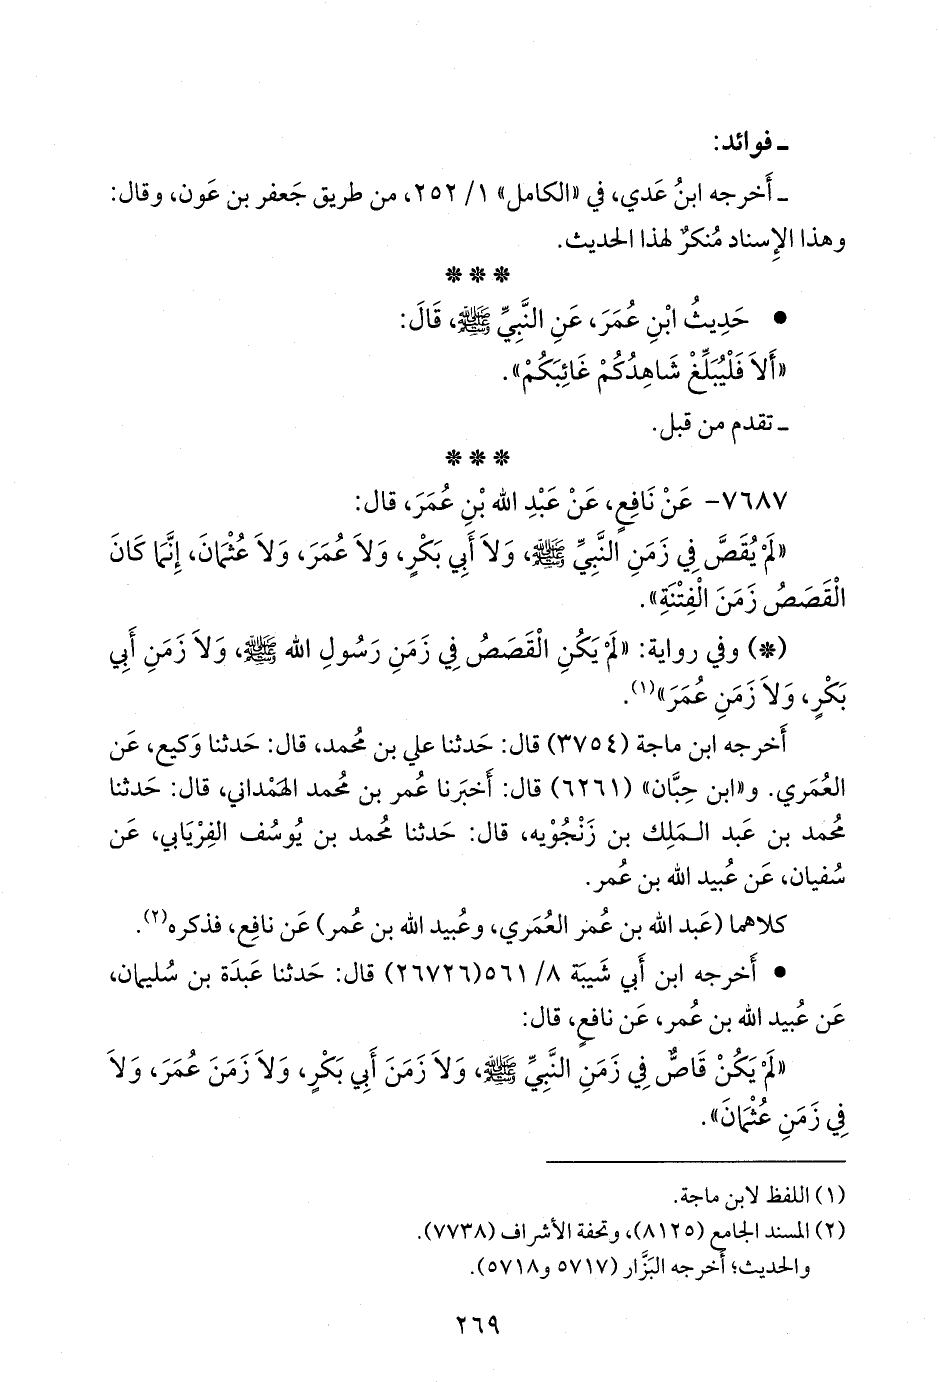 ـ فوائد:
ـ أَخرجه ابنُ عَدي، في «الكامل» ١/ ٢٥٢، من طريق جَعفر بن عَون، وقال:
وهذا الإِسناد مُنكرٌ لهذا الحديث.
* * *
• حَدِيثُ ابْنِ عُمَرَ، عَنِ النَّبِيِّ ﷺ، قَالَ:
«أَلاَ فَلْيُبَلِّغْ شَاهِدُكُمْ غَائِبَكُمْ».
ـ تقدم من قبل.
* * *
٧٦٨٧- عَنْ نَافِعٍ، عَنْ عَبْدِ الله بْنِ عُمَرَ، قال:
«لَمْ يُقَصَّ فِي زَمَنِ النَّبِيِّ ﷺ، وَلاَ أَبِي بَكْرٍ، وَلاَ عُمَرَ، وَلاَ عُثْمَانَ، إِنَّمَا كَانَ
الْقَصَصُ زَمَنَ الْفِتْنَةِ».
(*) وفي رواية: «لَمْ يَكُنِ الْقَصَصُ فِي زَمَنِ رَسُولِ الله ﷺ، وَلاَ زَمَنِ أَبِي
بَكْرٍ، وَلاَ زَمَنِ عُمَرَ»(١).
أَخرجه ابن ماجة (٣٧٥٤) قال: حَدثنا علي بن مُحمد، قال: حَدثنا وَكيع، عَن
العُمَري. و«ابن حِبَّان» (٦٢٦١) قال: أَخبَرنا عُمر بن مُحمد الهَمْداني، قال: حَدثنا
مُحمد بن عَبد المَلِك بن زَنْجُوْيه، قال: حَدثنا مُحمد بن يُوسُف الفِرْيَابي، عَن
سُفيان، عَن عُبيد الله بن عُمر.
كلاهما (عَبد الله بن عُمر العُمَري، وعُبيد الله بن عُمر) عَن نافِع، فذكره(٢).
• أَخرجه ابن أَبي شَيبَة ٨/ ٥٦١(٢٦٧٢٦) قال: حَدثنا عَبدَة بن سُليمان،
عَن عُبيد الله بن عُمر، عَن نافِعٍ، قال:
«لَمْ يَكُنْ قَاصٌّ فِي زَمَنِ النَّبِيِّ ﷺ، وَلاَ زَمَنَ أَبِي بَكْرٍ، وَلاَ زَمَنَ عُمَرَ، وَلاَ
فِي زَمَنِ عُثْمَانَ».
(١) اللفظ لابن ماجة.
(٢) المسند الجامع (٨١٢٥)، وتحفة الأشراف (٧٧٣٨).
والحديث؛ أخرجه البَزَّار (٥٧١٧ و٥٧١٨).
٢٦٩